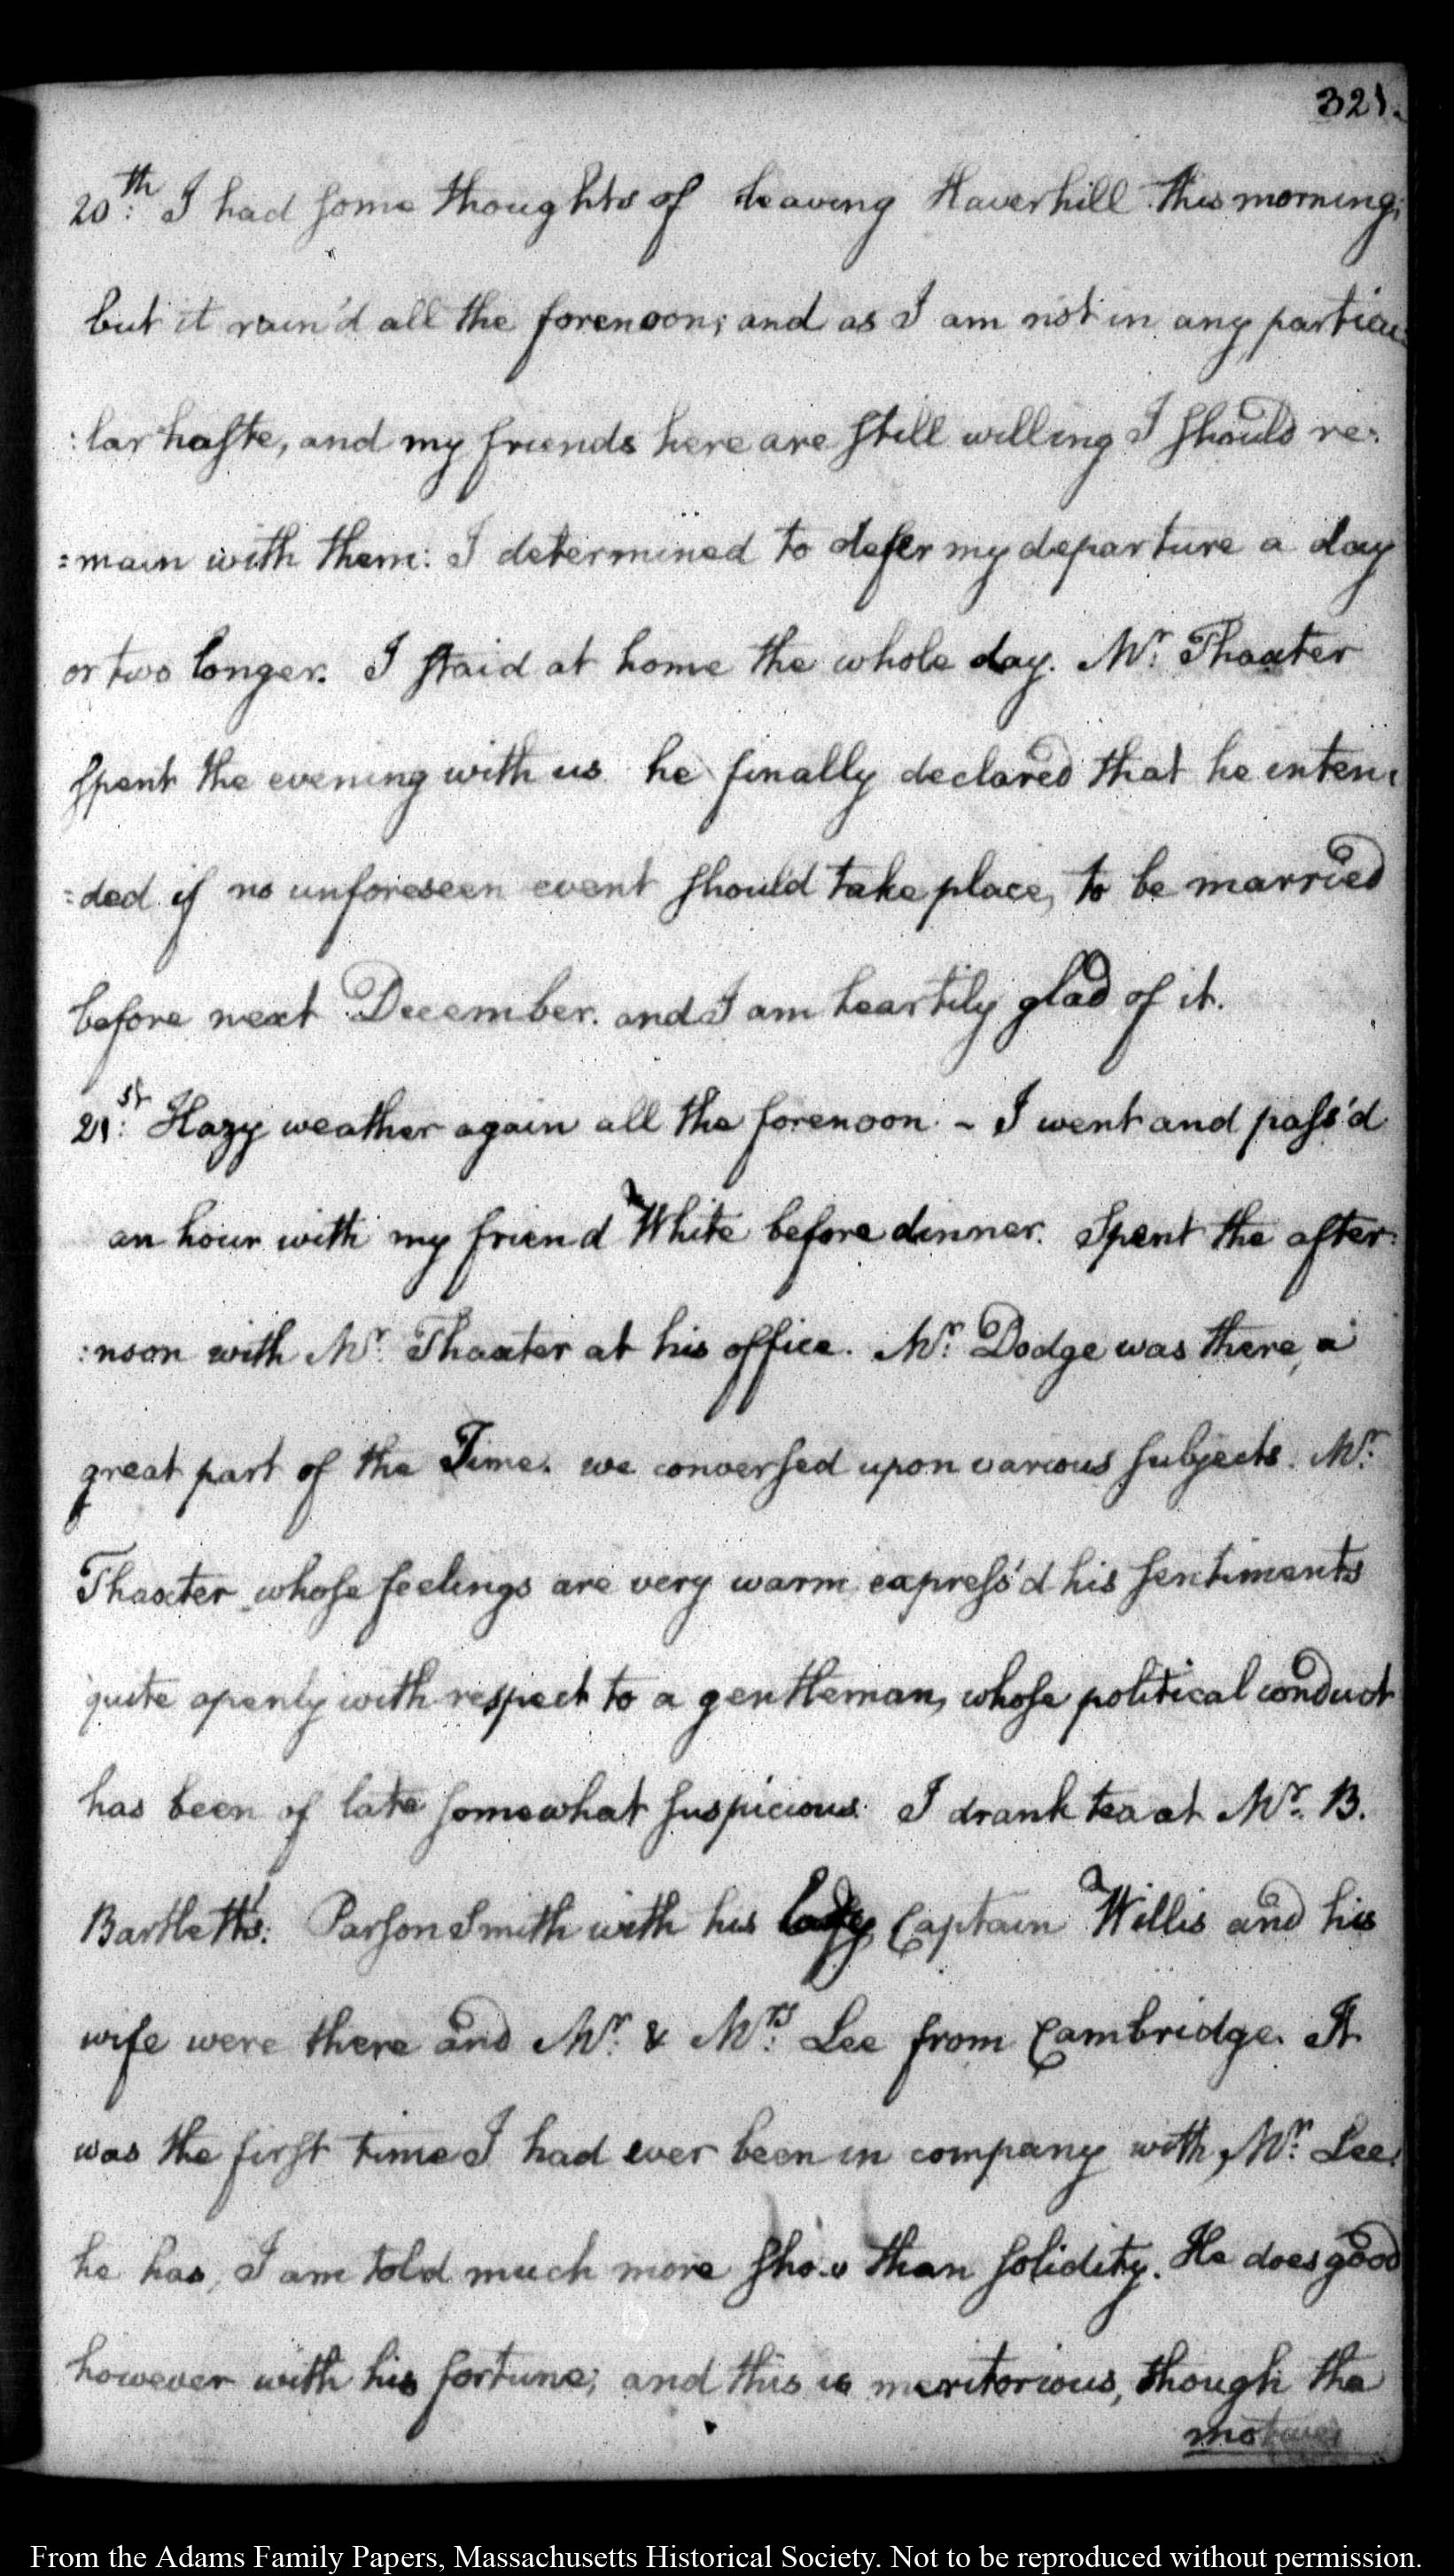 321.
20th: I had some thoughts of leaving Haverhill this morning;
but it rain'd all the forenoon; and as I am not in any particu:
:lar haste, and my friends here are still willing I should re:
=main with them: I determined to defer my departure a day
or two longer. I staid at home the whole day. Mr: Thaxter
spent the evening with us he finally declared that he inten:
=ded if no unforeseen event should take place, to be married
before next December. and I am heartily glad of it.
21st: Hazy weather again all the forenoon. - I went and pass'd
an hour with my friend White before dinner. Spent the after:
:noon with Mr: Thaxter at his office. Mr: Dodge was there, a
great part of the Time. we conversed upon various subjects. Mr:
Thaxter whose feelings are very warm express'd his sentiments
quite openly with respect to a gentleman, whose political conduct
has been of late somewhat suspicious. I drank tea at Mr. B.
Bartlett's: Parson Smith with his lady, Captain Willis and his
wife were there and Mr: & Mrs: Lee from Cambridge. It
was the first time I had ever been in company with Mr: Lee:
he has, I am told much more show than solidity. He does good
however with his fortune; and this is meritorious, though the
motives
From the Adams Family Papers, Massachusetts Historical Society. Not to be reproduced without permission.